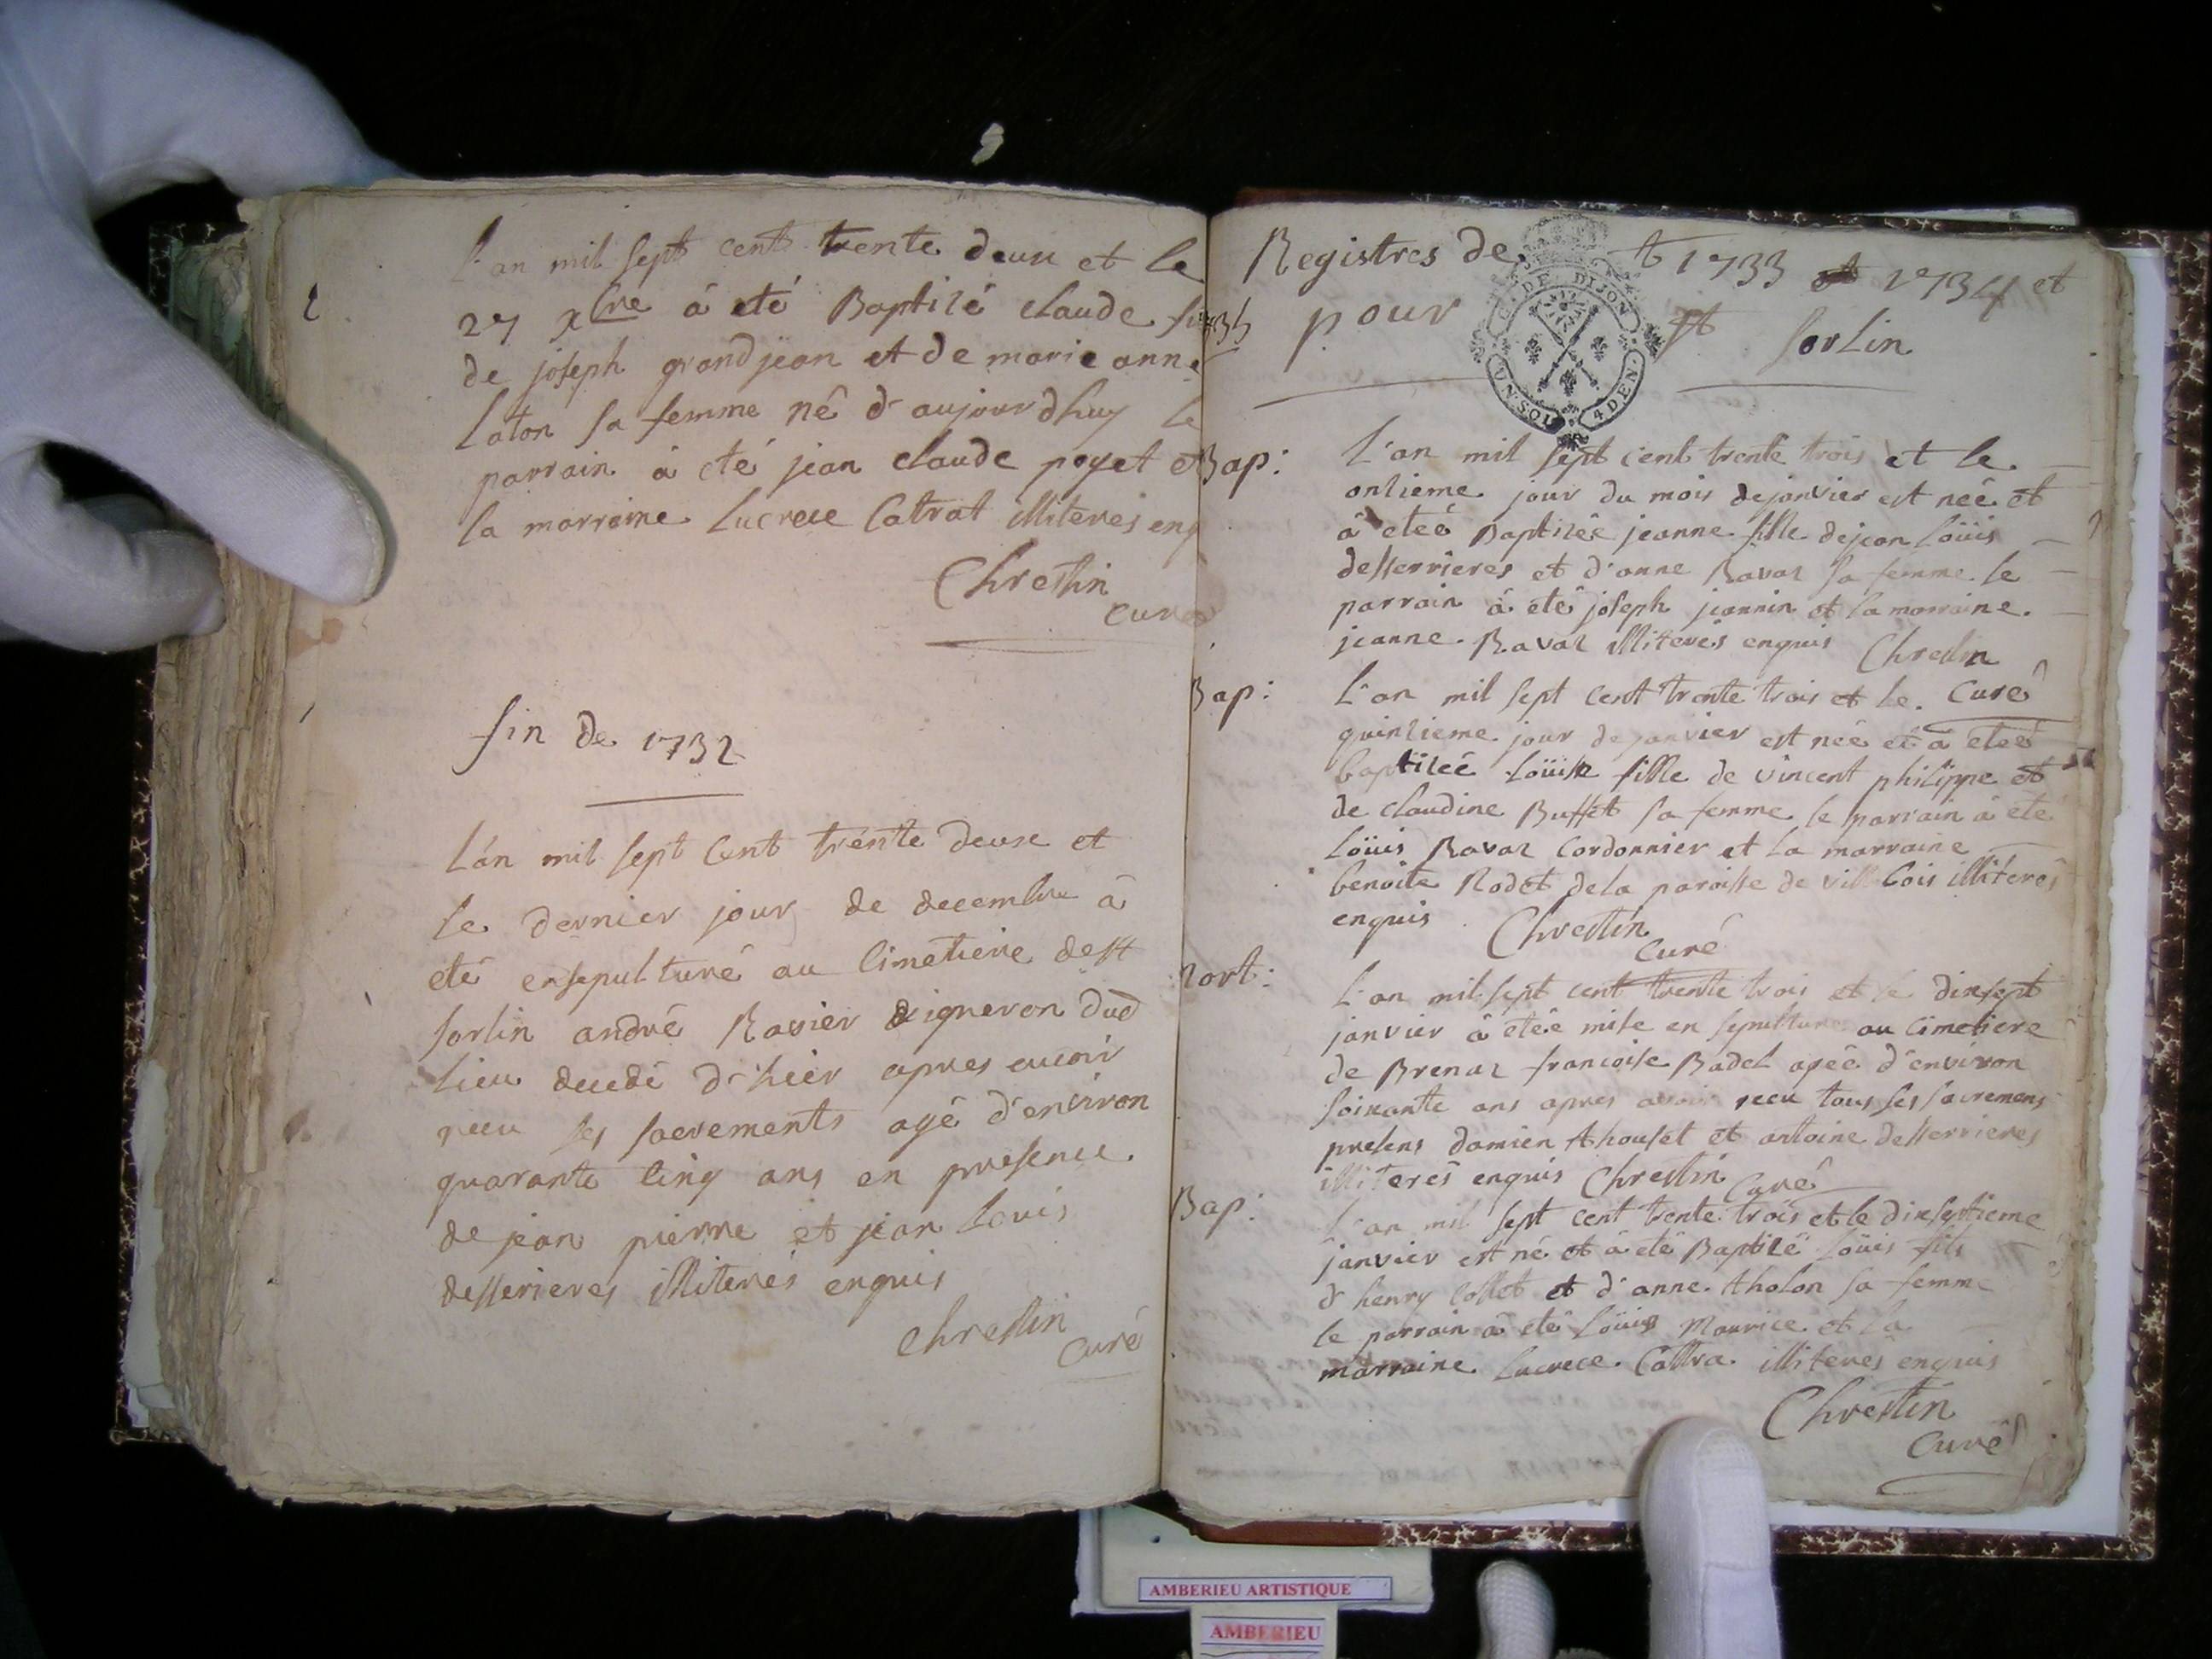 L'an mil sept cent trente deux et le
27 xbre â eté Baptizé claude
de joseph grandjean et de marie anne
laton sa femme né d'aujourdhuy le
parrain â eté jean claude poyet et
la marraine Lucrece Catrat illiterés enq
Chrestin
curé
fin de 1732
L'an mil sept cent trente deux et
le dernier jour de decembre â
eté ensepulturé au cimetiere de st
sorlin andré Ravier vigneron dud
lieu decedé d'hier apres avoir
receu ses sacrements agé d'environ
quarante cinq ans en presence
de jean pierre et jean louis
desserieres illiterés enquis
chrestin
curé
Registres de 1733 et 1734 et
pour st sorlin
G. DE DIJON
UN SOL 4 DEN.
Bap:
L'an mil sept cent trente trois et le
onzieme jour du mois de janvier est neé et
â eteé Baptizée jeanne fille de jean Loüis
desserrieres et d'anne Ravaz sa femme le
parrain â eté joseph jeannin et la marraine
jeanne Ravaz illiterés enquis Chrestin
curé
Bap:
L'an mil sept cent trente trois et le
quinzieme jour de janvier est neé et â eteé
baptizeé Loüise fille de vincent philippe et
de claudine Buffet sa femme le parrain â eté
Loüis Ravaz cordonnier et la marraine
benoite Rodet de la paroisse de villebois illiterés
enquis Chrestin
curé
mort:
L'an mil sept cent trente trois et le dixsept
janvier â eteé mise en sepulture au cimetiere
de Brenaz francoise Badel ageé d'environ
soixante ans apres avoir receu tous ses sacremens
presens damien thouset et antoine desserrieres
illiterés enquis Chrestin curé
Bap:
L'an mil sept cent trente trois et le dixseptieme
janvier est né et â eté Baptizé Loüis fils
d'henry Collet et d'anne tholon sa femme
le parrain â eté Loüis Maurice et la
marraine Lucrece Cattra illiterés enquis
Chrestin
curé
AMBERIEU ARTISTIQUE
AMBERIEU